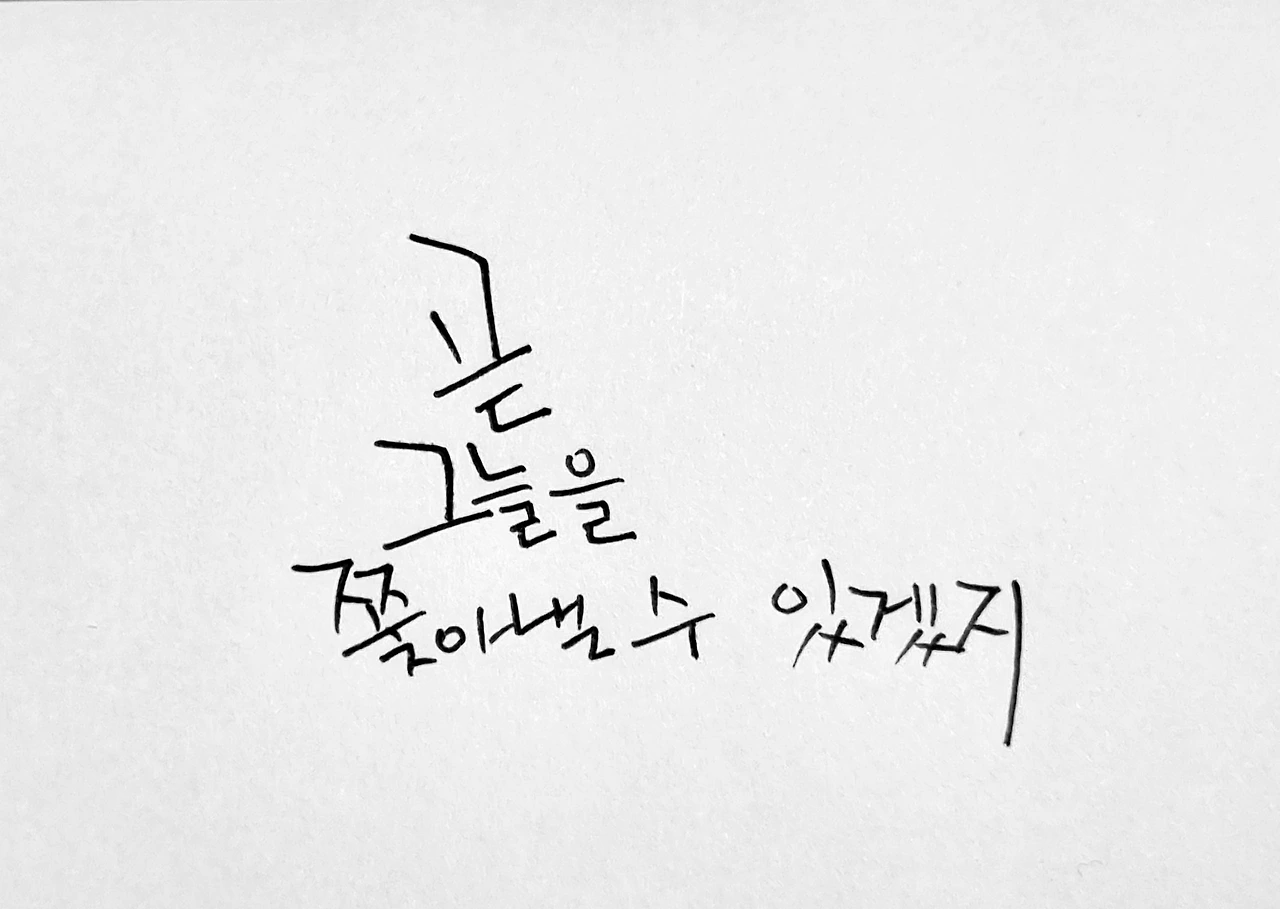 곧
그늘을
쫓아낼 수 있겠지